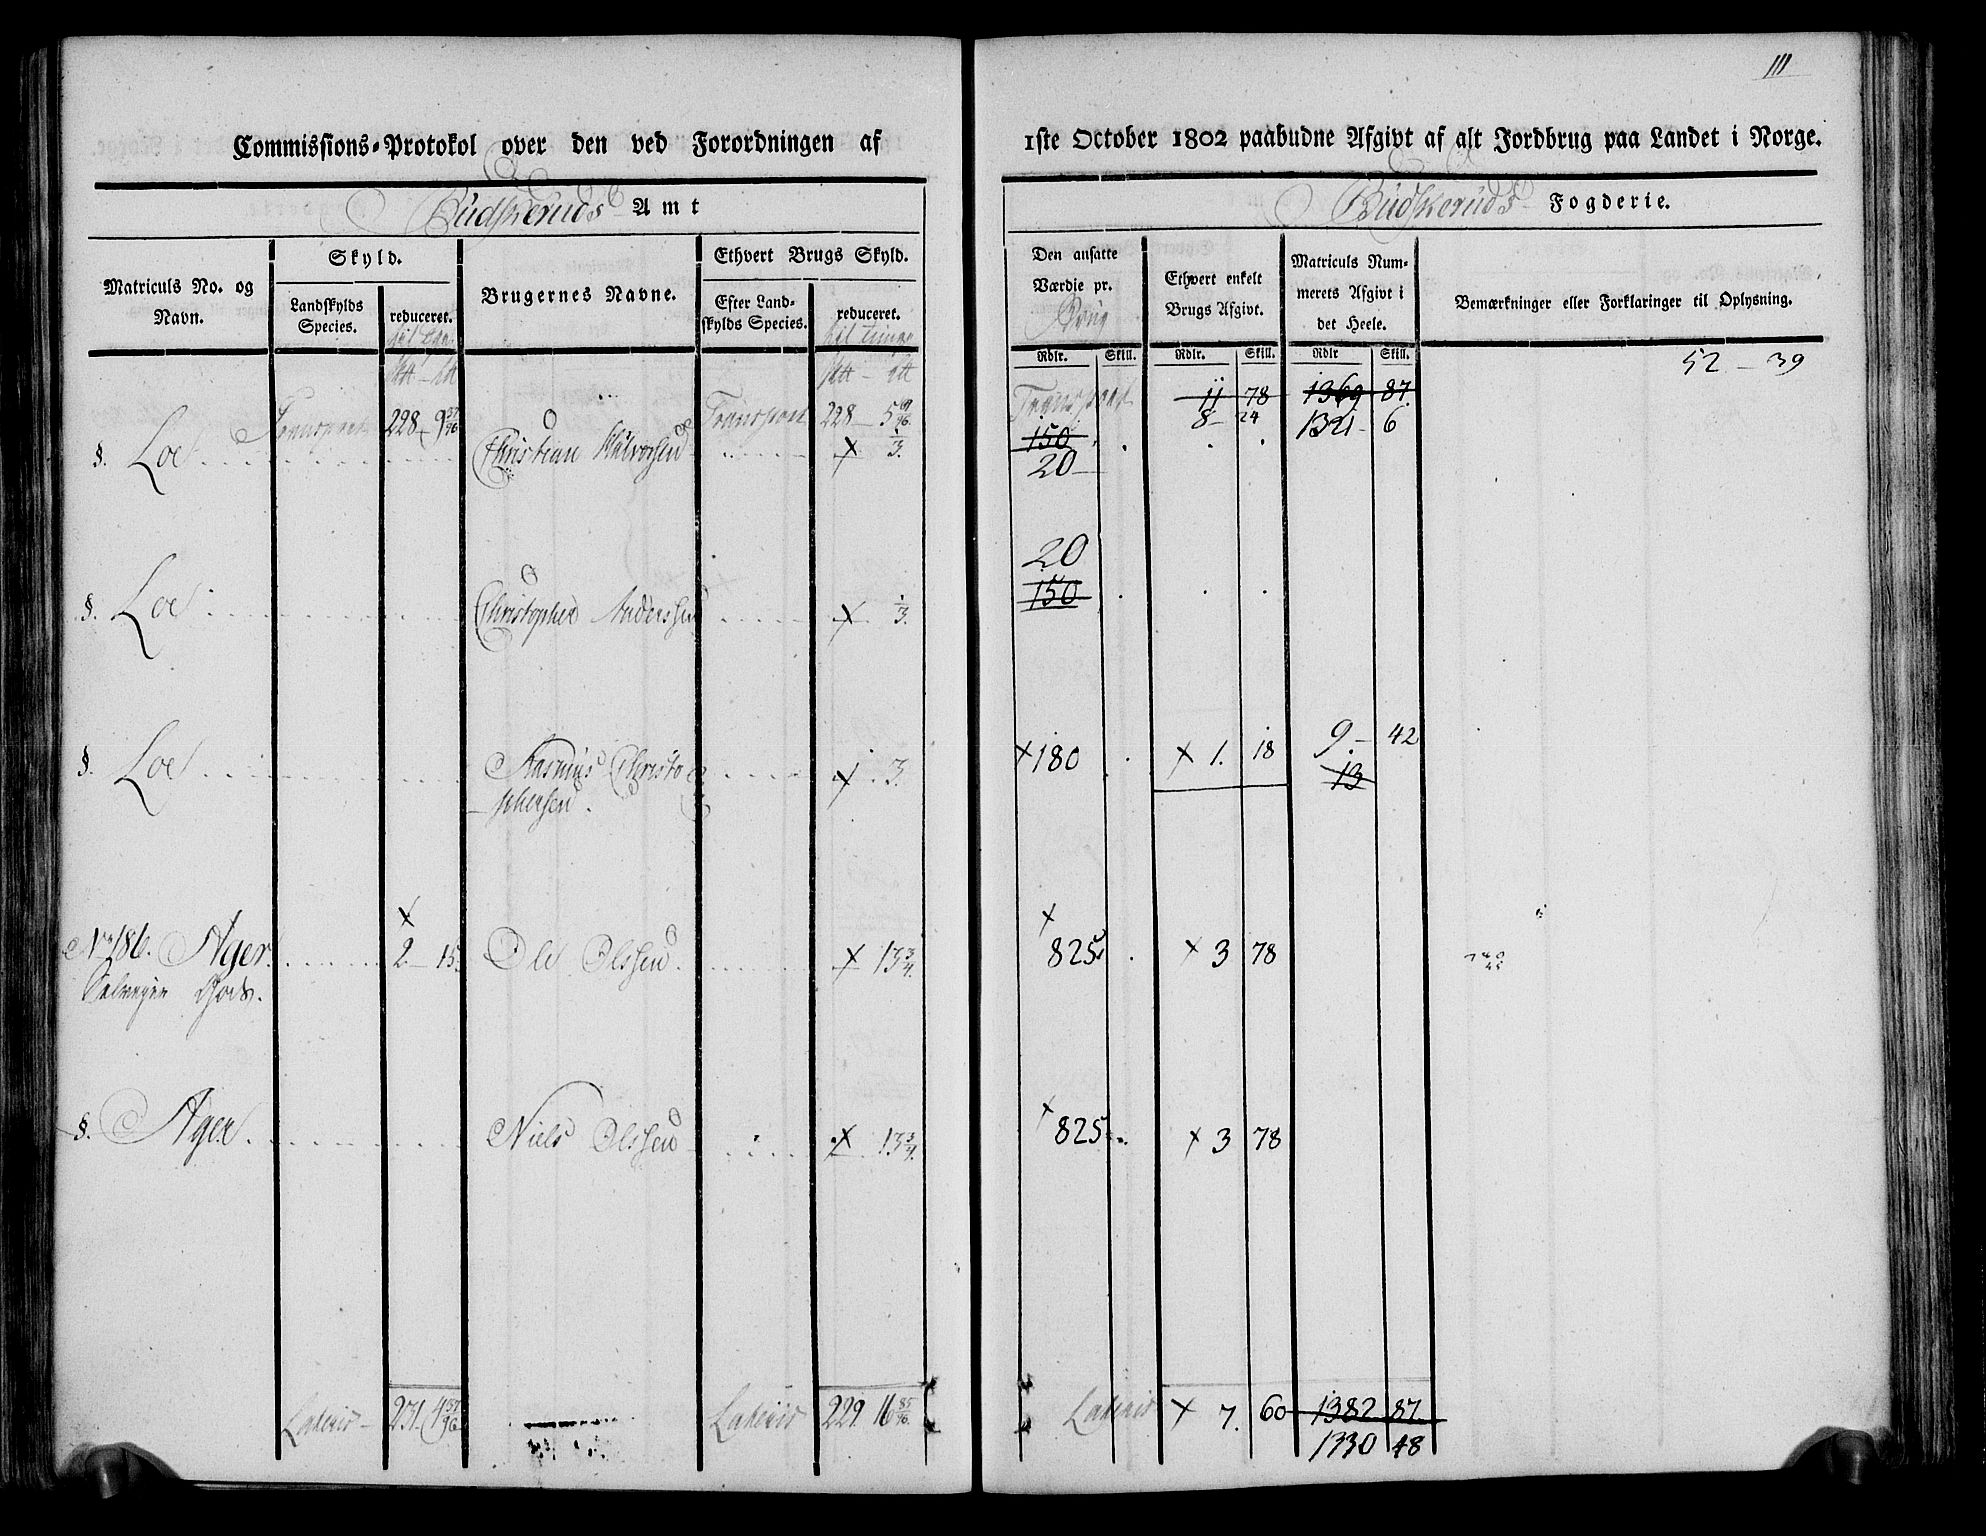 111
Commissions-Protokol over den ved Forordningen af
1ste October 1802 paabudne Afgivt af alt Jordbrug paa Landet i Norge.
Budskeruds Amt
Budskeruds Fogderie.
Matriculs No. og Navn.
Skyld.
Landskylds Species.
reduceret.
Brugernes Navne.
Ethvert Brugs Skyld.
Efter Landskylds Species.
reduceret.
Den ansatte Værdie pr. Brug
Ethvert enkelt Brugs Afgivt.
Matriculs Nummerets Afgivt i det Heele.
Bemærkninger eller Forklaringer til Oplysning.
Rdlr. Skill. Rdlr. Skill. Rdlr Skill.
52 - 39
Transport 228 - 9 37/96 Transport 228 - 5 69/96 Transport 11 78 1369 87
8 - 24 1321 - 6
§. Loe Christian Halvorsen x 1/3. 150
20
20
§. Loe Christopher Anderssen x 1/3. 150
§. Loe Rasmus Christophersen x 3. x 180 x 1. 18 9. - 42
13
No 186. Ager x 2 - 15. Ole Olssen x 13 3/4. x 825 x 3 78
Selveyer Gods.
§. Ager Niels Olssen x 13 3/4. x 825 x 3 78
Lateris 231. 4 37/96 Lateris 229. 16 85/96. Lateris x 7. 60 1382 87
1330 48